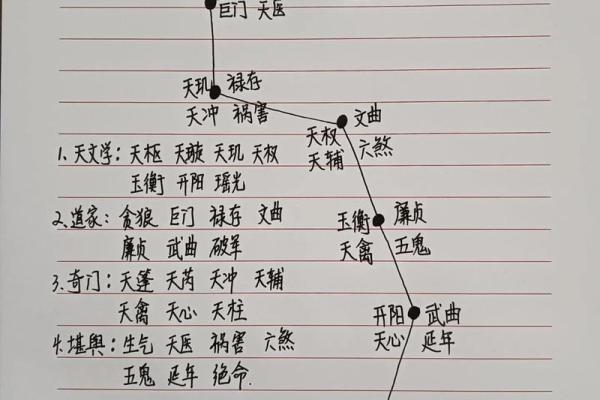 巨门 天医
天玑 禄存
天冲 祸害
文曲
天权
天辅 六煞
1、天文学：天枢 天璇 天玑 天权
玉衡 开阳 瑶光
2、道家：贪狼 巨门 禄存 文曲
廉贞 武曲 破军
玉衡 廉贞
天禽 五鬼
3、奇门：天蓬 天芮 天冲 天辅
天禽 天心 天柱
开阳 武曲
天心 延年
4、堪舆：生气 天医 祸害 六煞
五鬼 延年 绝命.